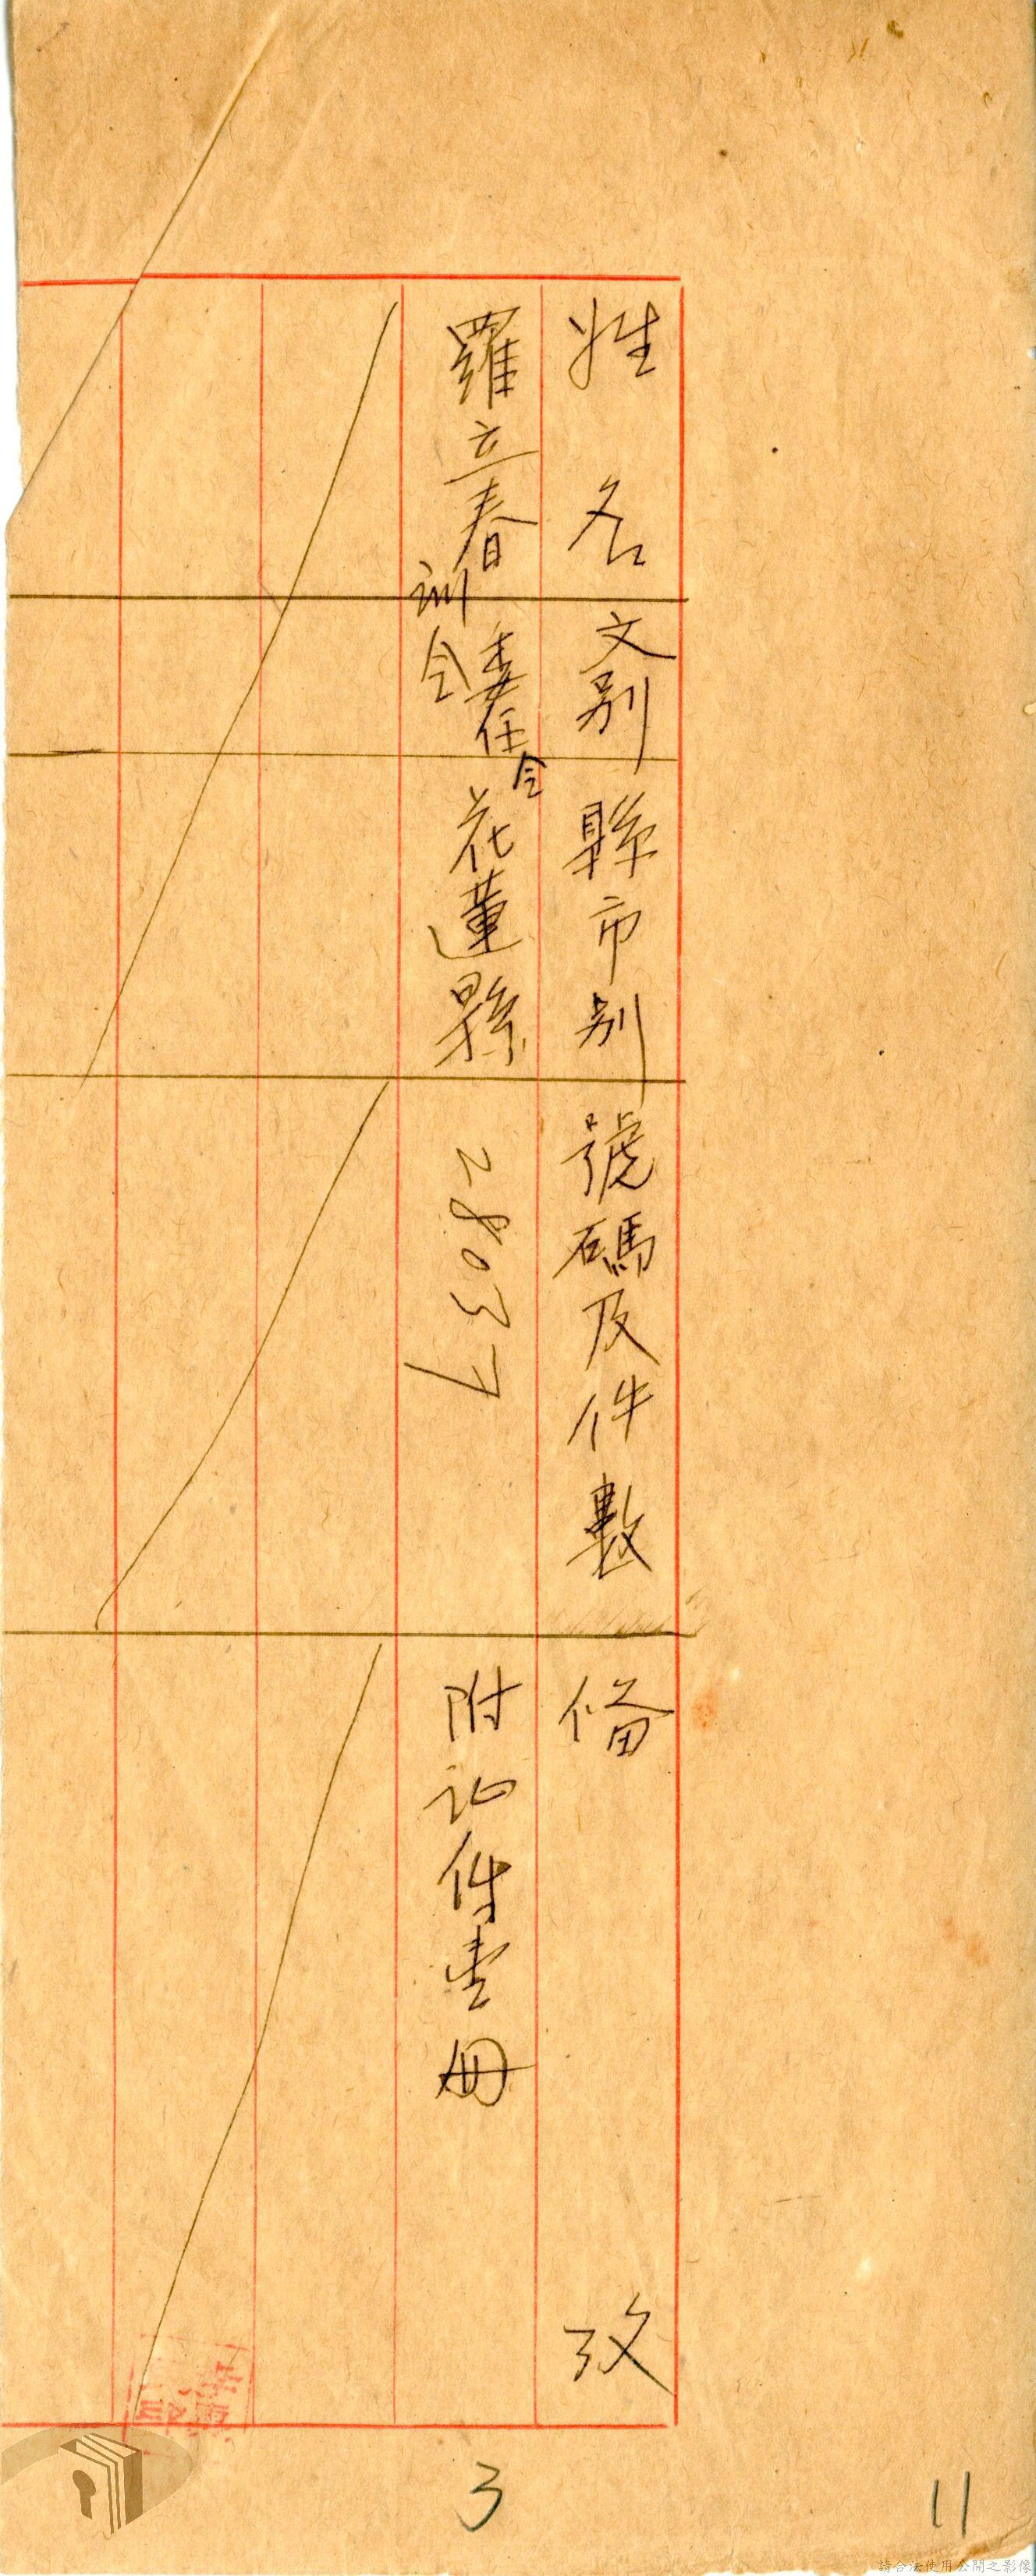 姓名 文別 縣市別 號碼及件數 俻攷
羅立春 委任令 花蓮縣 28037 附証件壹册
訓令
3
11
請合法使用公開之影像